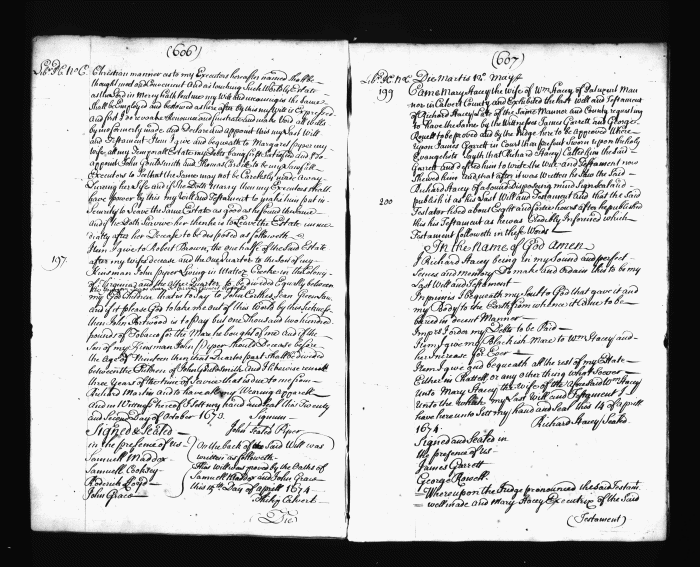 (606)
Christian manner as to my Executors hereafter named shall be
thought meet and Convenient And as touching such Worldly Estate
as the Lord in Mercy hath lent me my Will and meaning is the same
shall be Employed and bestowed as hereafter by this my Will is Expressed
and first I do revoke renounce frustrate and make Void all Wills
by me formerly made and Declare and Appoint this my Last Will
and Testament Item I give and bequeath to Margaret Piper my
wife all my Temporall Estate my Debts being first Satisfied and I do
appoint John Gouldsmith and Thomas to be my Lawfull
Executors to that the Same may not be Carelesly made Away
During her life and if She Doth Marry then my Executors shall
have power by this my Will and Testament to make him put in
Security to leave the Same Estate as good as he found the same
and if he Doth Survive her then he is to leave the Estate imme
diatly after her Decease to be disposed as followeth
Item I give to Robert Brown the one halfe of the Said Estate
197.
after my wifes decease and the One Quarter to the Son of my
Kinsman John Piper Living in Creeke in the County
of Virginia and the other Quarter to be divided Equally between
my God Children that is to say to John
and if it please God to take me out of this World by this Sickness
then John is to pay but one Thousand two hundred
pounds of Tobacco for the Mare he bought of me and if the
Son of my Kinsman John Piper should Decease before
the Age of Nineteen then that Deceates part shall be divided
between the Children of John Gouldsmith And I likewise remitt
three Years of the time of Service that is due to me from
Richard Martin and to have all my Wearing Apparell
And in Wittness hereof I Sett my hand and Seal this Twenty
and Second Day of October 1673. Signum
Signed Sealed John Seald Piper
in the presence of us
Samuell Maddox
Samuell Cooksey
Roderick Lloyd
John Grace
On the back of the Said Will was
written as followeth
This Will was proved by the Oaths of
Samuell Maddox and John Grace
this 14th Day of Aprill 1674
Philip Calvert
Die
(607)
Die Martis 12o May
199
Came Mary Stacey the wife of Wm Stacey of Patuxent Man
nor in Calvert County and Exhibited the last Will and Testament
of Richard Stacey late of the Same Mannor and County requesting
to have the Same by the Wittnesses James Garrett and George
Rowell to be proved and by the Judge here to be Approved Where
upon James Garrett in Court then present Sworn upon the holy
Evangelists Sayth that Richard Stacey Called him the Said
Garrett and desired him to Write the Will and Testament now
Shewed him and that after it was Written he Saw the Said
Richard Stacey of a Sound Disposeing mind Signe Seal and
publish it as his Last Will and Testament And that the Said
200
Testator lived about Eight and forty hours after he published
this his Testament as he was Credibly Informed which
Testament followeth in these Words
In the Name of God Amen
I Richard Stacey being in my Sound and perfect
Sences and memory Do make and Ordain this to be my
Last Will and Testament
Imprimis I bequeath my Soul to God that gave it and
my Body to the Earth from whence it Came to be
buried in decent Manner
Imps I order my Debts to be Paid
Item I give my Blackish Mare to Wm Stacey and
her Increase for Ever
Item I give and bequeath all the rest of my Estate
Either in Chattell or any other thing what Soever
unto Mary Stacey the Wife of the aforesaid Wm Stacey
Unto the which my Last Will and Testament I
have here unto Sett my hand and Seal this 14 of Aprill
1674. Richard Stacey Seald.
Signed and Sealed in
the presence of us
James Garrett
George Rowell.
Whereupon the Judge pronounced the Said Testamt
well made and Mary Stacey Executrix of the Said
(Testament)